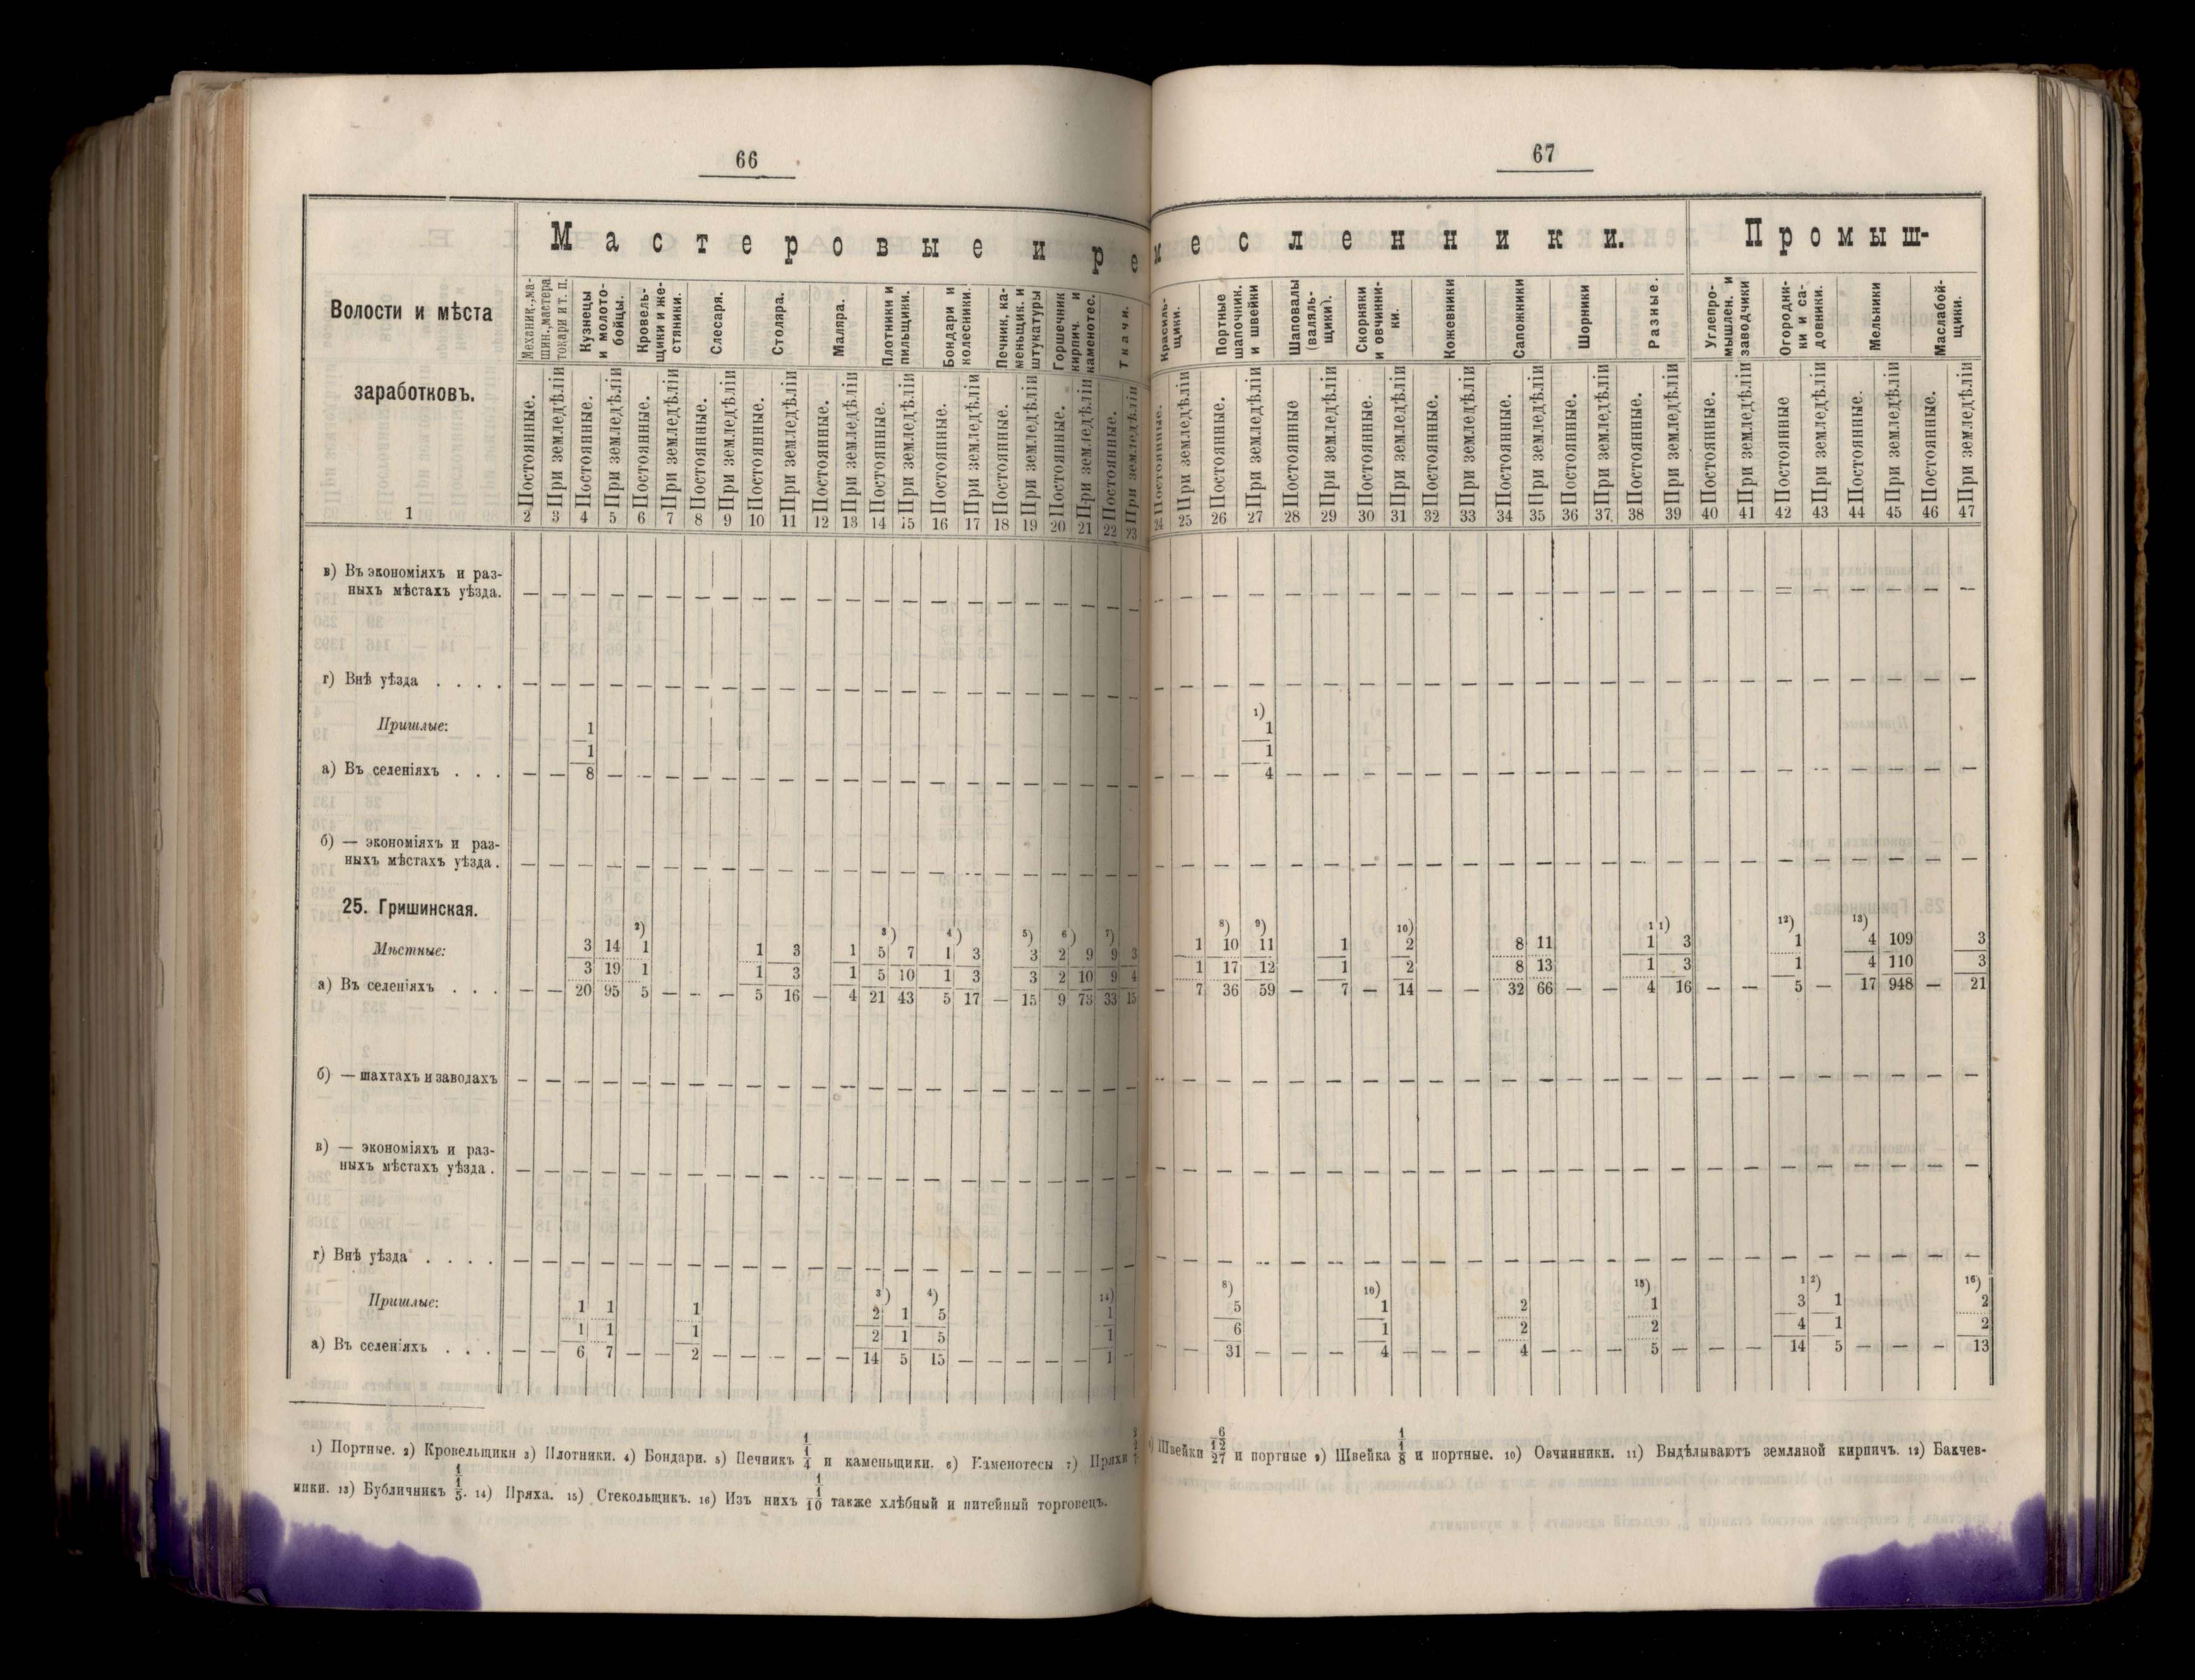 66
Мастеровые и ре
Волости и мѣста
заработковъ.
Механик.,ма-
шин.,мастера
токари и т. п.
Кузнецы
и молото-
бойцы.
Кровель-
щики и же-
стяники.
Слесаря.
Столяра.
Маляра.
Плотники и
пильщики.
Бондари и
колесники.
Печник, ка-
меньщик. и
штукатуры
Горшечник
кирпич. и
каменотес.
Ткачи.
Постоянные. При земледѣліи Постоянные. При земледѣліи Постоянные. При земледѣліи Постоянные. При земледѣліи Постоянные. При земледѣліи Постоянные. При земледѣліи Постоянные. При земледѣліи Постоянные. При земледѣліи Постоянные. При земледѣліи Постоянные. При земледѣліи Постоянные. При земледѣліи
1 2 3 4 5 6 7 8 9 10 11 12 13 14 15 16 17 18 19 20 21 22 23
в) Въ экономіяхъ и раз-
ныхъ мѣстахъ уѣзда. — — — — — — — — — — — — — — — — — — — — — —
г) Внѣ уѣзда . . . . — — — — — — — — — — — — — — — — — — — — — —
Пришлые: 1
1
а) Въ селеніяхъ . . . — — 8 — — — — — — — — — — — — — — — — — — —
б) — экономіяхъ и раз-
ныхъ мѣстахъ уѣзда . — — — — — — — — — — — — — — — — — — — — — —
25. Гришинская.
2) 3) 4) 5) 6) 7)
Мѣстные: 3 14 1 1 3 1 5 7 1 3 3 2 9 9 3
3 19 1 1 3 1 5 10 1 3 3 2 10 9 4
а) Въ селеніяхъ . . . — — 20 95 5 — — — 5 16 — 4 21 43 5 17 — 15 9 73 33 15
б) — шахтахъ и заводахъ — — — — — — — — — — — — — — — — — — — — — —
в) — экономіяхъ и раз-
ныхъ мѣстахъ уѣзда . — — — — — — — — — — — — — — — — — — — — — —
г) Внѣ уѣзда . . . . — — — — — — — — — — — — — — — — — — — — — —
3) 4) 14)
Пришлые: 1 1 1 2 1 5 1
1 1 1 2 1 5 1
а) Въ селеніяхъ . . . — — 6 7 — — 2 — — — — — 14 5 15 — — — — — 1 —
1) Портные. 2) Кровельщики 3) Плотники. 4) Бондари. 5) Печникъ 1/1/4 и каменьщики. 6) Каменотесы 7) Пряхи
67
месленники.
Промыш-
Красиль-
щики.
Портные
шапочник.
и швейки
Шаповалы
(валяль-
щики).
Скорняки
и овчинни-
ки.
Кожевники
Сапожники
Шорники
Разные.
Углепро-
мышлен. и
заводчики
Огородни-
ки и са-
довники.
Мельники
Маслабой-
щики.
Постоянные. При земледѣліи Постоянные. При земледѣліи Постоянные При земледѣліи Постоянные. При земледѣліи Постоянные. При земледѣліи Постоянные. При земледѣліи Постоянные. При земледѣліи Постоянные. При земледѣліи Постоянные. При земледѣліи Постоянные При земледѣліи Постоянные. При земледѣліи Постоянные. При земледѣліи
24 25 26 27 28 29 30 31 32 33 34 35 36 37 38 39 40 41 42 43 44 45 46 47
— — — — — — — — — — — — — — — — — — — — — — — —
— — — — — — — — — — — — — — — — — — — — — — — —
1)
1
1
— — — 4 — — — — — — — — — — — — — — — — — — — —
— — — — — — — — — — — — — — — — — — — — — — — —
8) 9) 10) 11) 12) 13)
1 10 11 1 2 8 11 1 3 1 4 109 3
1 17 12 1 2 8 13 1 3 1 4 110 3
— 7 36 59 — 7 — 14 — — 32 66 — — 4 16 — — 5 — 17 948 — 21
— — — — — — — — — — — — — — — — — — — — — — — —
— — — — — — — — — — — — — — — — — — — — — — — —
— — — — — — — — — — — — — — — — — — — — — — — —
8) 10) 15) 12) 16)
5 1 2 1 3 1 2
6 1 2 2 4 1 2
— — 31 — — — 4 — — — 4 — — — 5 — — — 14 5 — — — 13
Швейки 6/12/27 и портные 9) Швейка 1/1/8 и портные. 10) Овчинники. 11) Выдѣлываютъ земляной кирпичъ. 12) Бакчев-
ники. 13) Бубличникъ 1/1/5. 14) Пряха. 15) Стекольщикъ. 16) Изъ нихъ 1/1/10 также хлѣбный и питейный торговецъ.